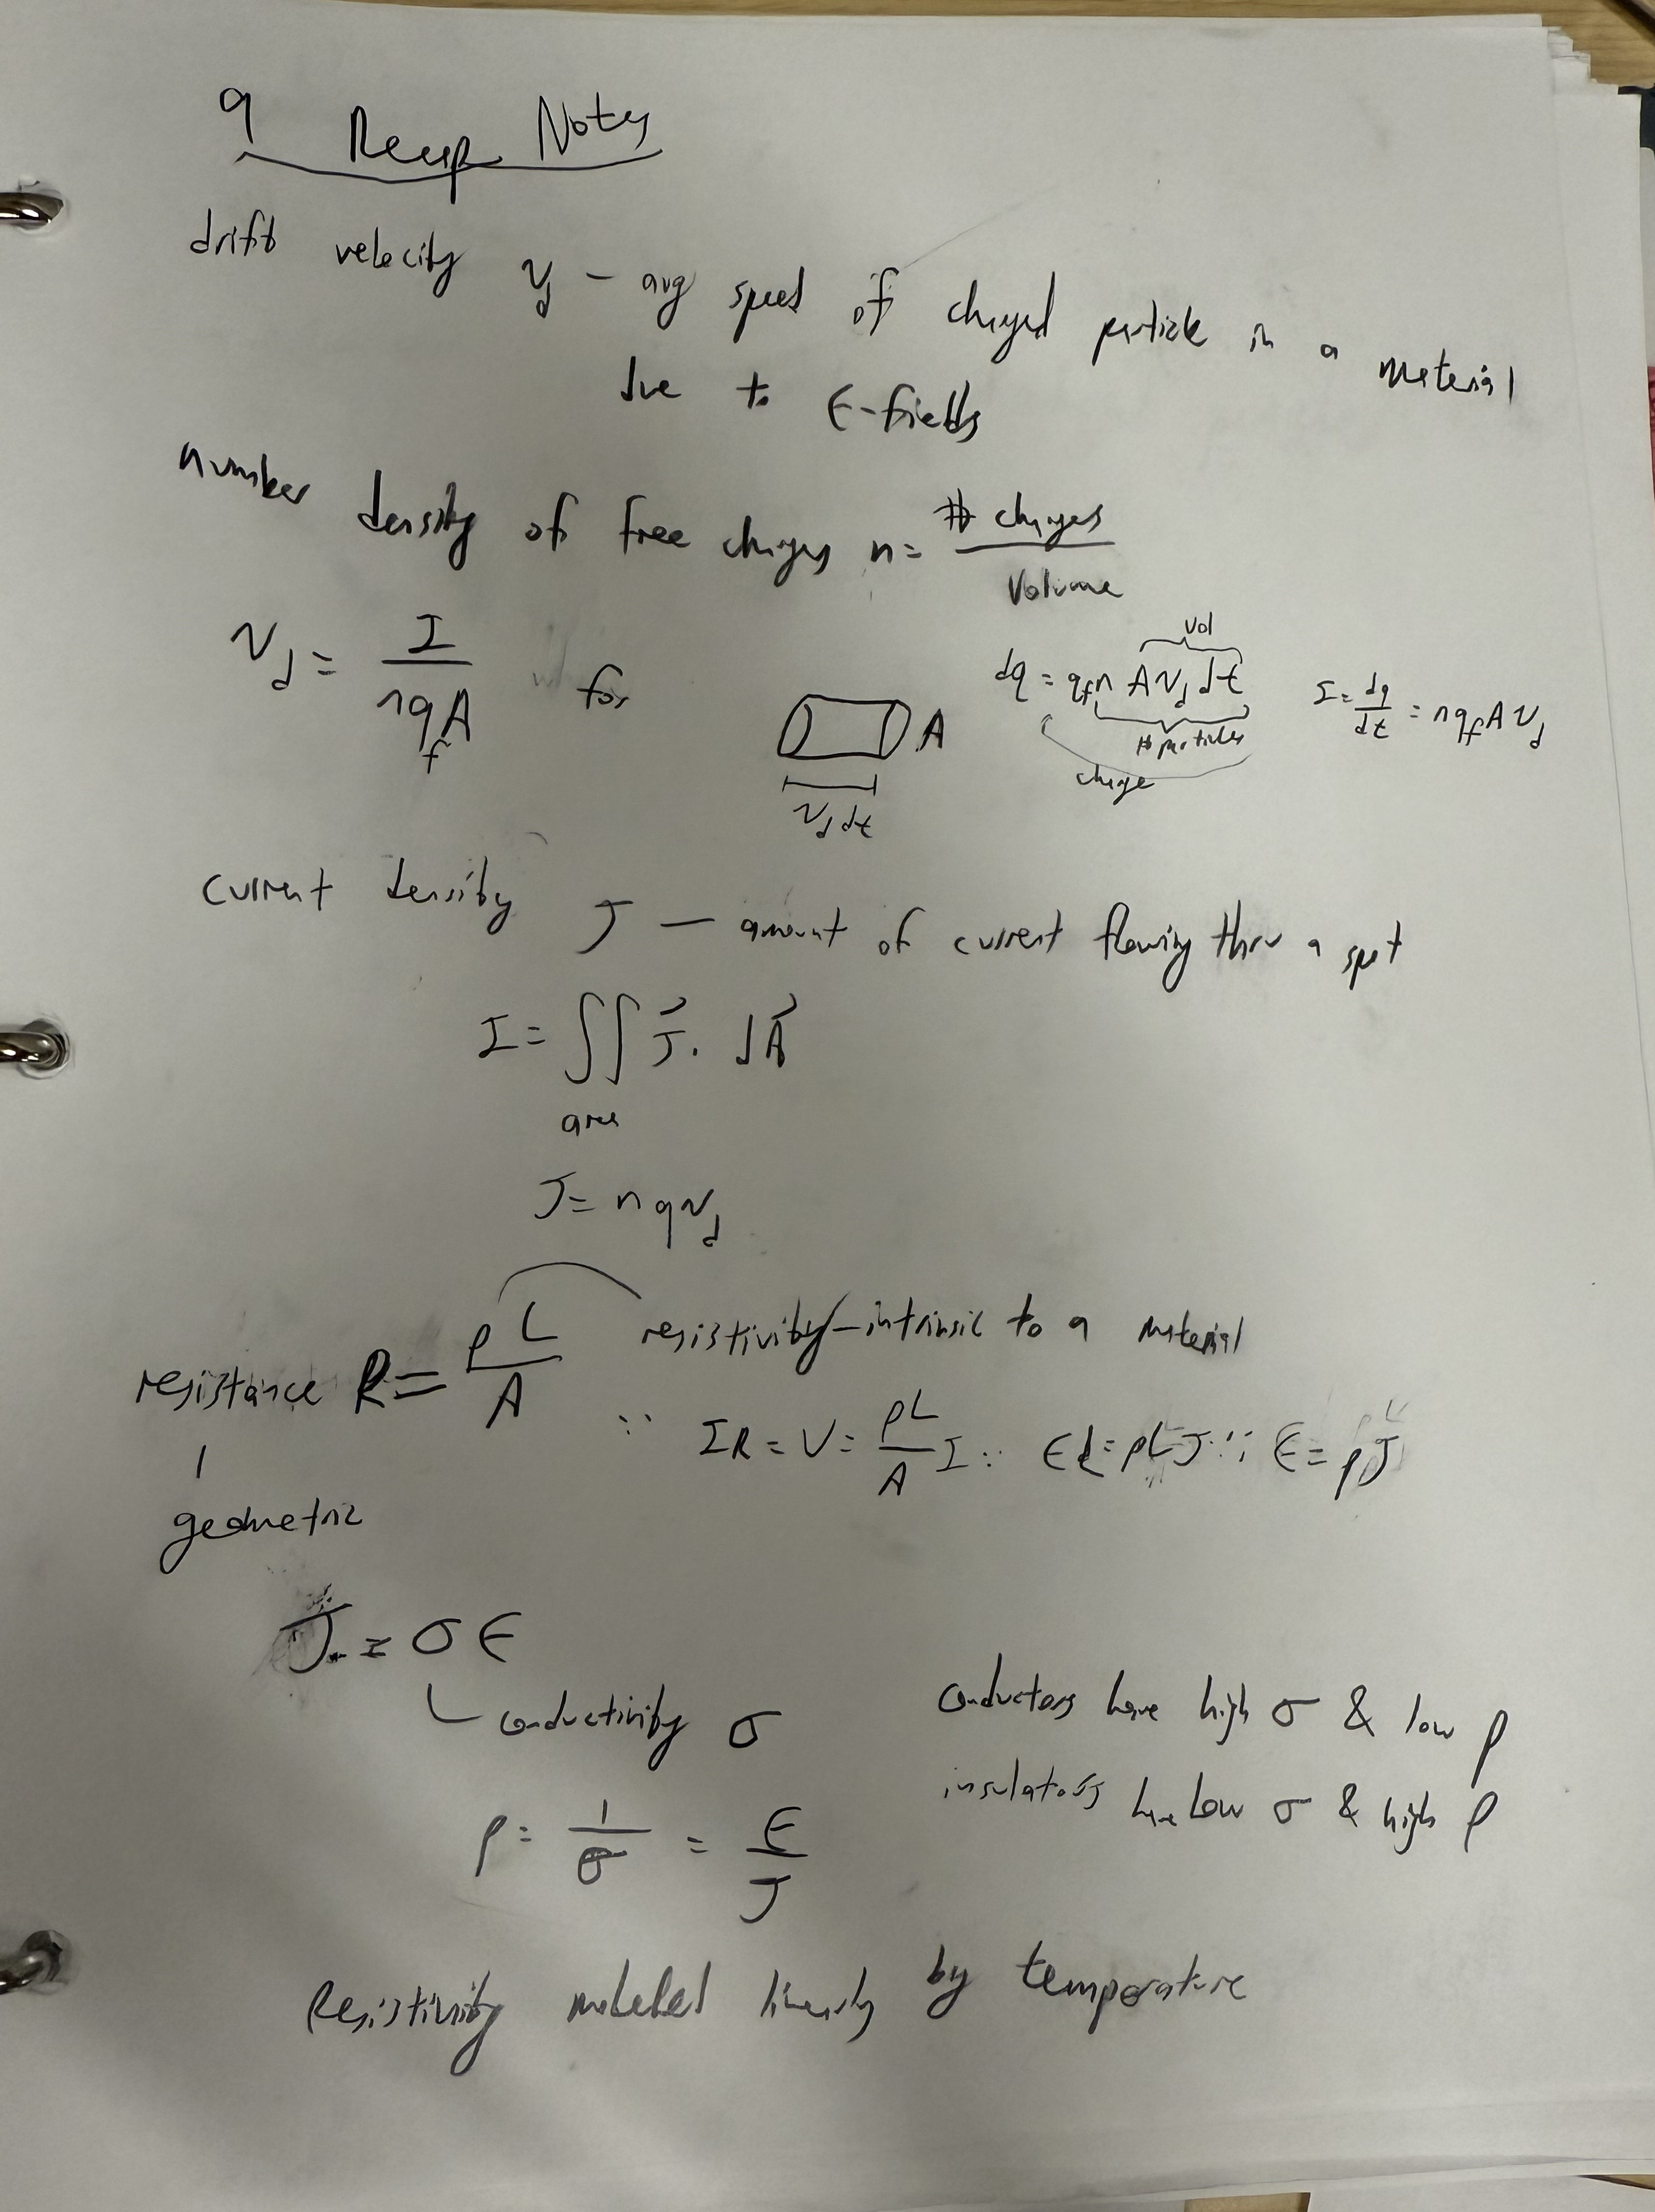 9 Recap Notes
drift velocity v_d – avg speed of charged particle in a material
due to E-fields
number density of free charges n = # charges / Volume
v_d = I / nq_fA for
A
v_d dt
vol
dq = q_f n A v_d dt
# particles
charge
I = dq/dt = nq_f A v_d
current density J — amount of current flowing thru a spot
I = ∫∫ J⃗ · dA⃗
area
J = nqv_d
resistance R = ρL / A
resistivity – intrinsic to a material
geometric
∵ IR = V = ρL/A I ∵ EL = ρLJ ∵ E = ρJ
J = σE
conductivity σ
conductors have high σ & low ρ
insulators have low σ & high ρ
ρ = 1/σ = E/J
Resistivity modeled linearly by temperature